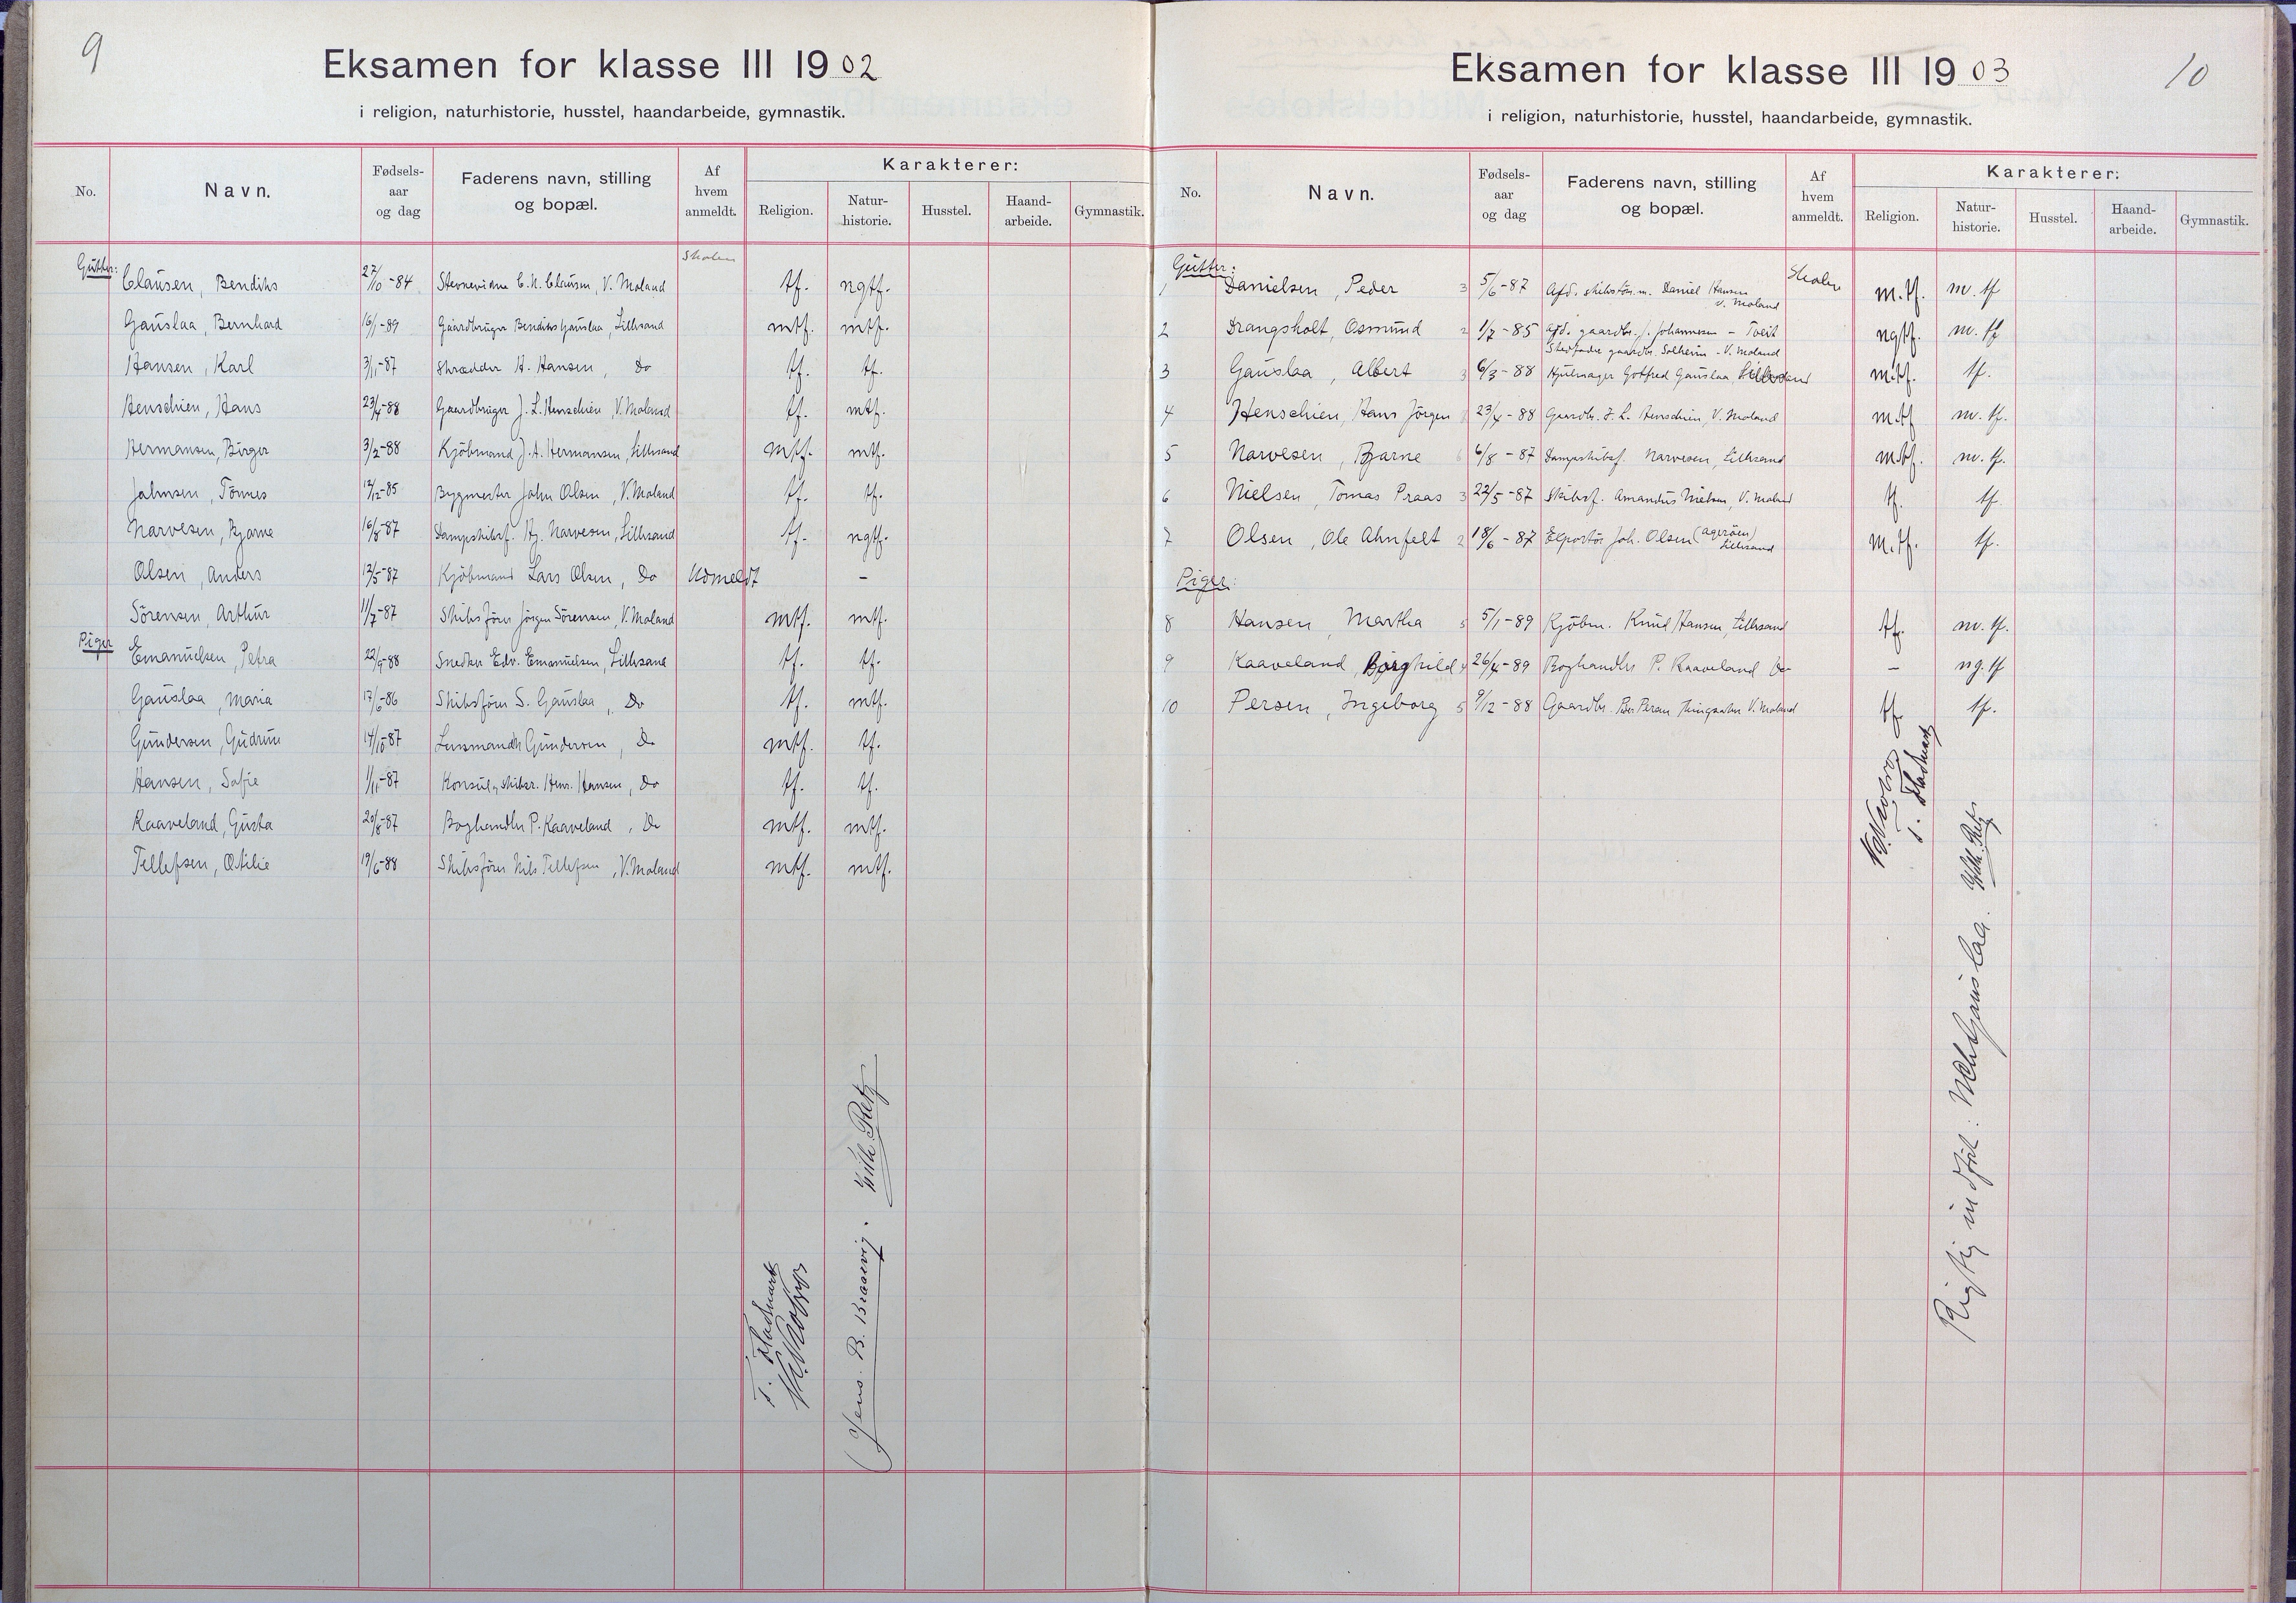 9
Eksamen for klasse III 1902
i religion, naturhistorie, husstel, haandarbeide, gymnastik.
No. Navn. Fødsels-aar og dag Faderens navn, stilling og bopæl. Af hvem anmeldt. Karakterer: Religion. Natur-historie. Husstel. Haand-arbeide. Gymnastik.
Skolen
Gutter:
Clausen, Bendiks 27/10-84 C. N. Clausen, V. Moland tf. ngtf.
Gauslaa, Bernhard 16/1-89 Gaardbruger Bendiks Gauslaa, Lillesand mtf. mtf.
Hansen, Karl 3/11-87 Skrædder H. Hansen, Do tf. tf.
Henschien, Hans 23/4-88 Gaardbruger J. L. Henschien, V. Moland tf. mtf.
Hermansen, Birger 3/2-88 Kjöbmand J. A. Hermansen, Lillesand mtf. mtf.
Johnsen, Tönnes 12/12-85 Bygmester John Olsen, V. Moland tf. tf.
Narvesen, Bjarne 16/8-87 Dampskibsf. Narvesen, Lillesand tf. ngtf.
Olsen, Anders 12/5-87 Kjöbmand Lars Olsen, Do Udmeldt –
Sörensen, Arthur 11/7-87 Skibsförer Jörgen Sörensen, V. Moland mtf. mtf.
Piger
Emanuelsen, Petra 22/9-88 Snedker Edv. Emanuelsen, Lillesand tf. tf.
Gauslaa, Maria 17/6-86 Skibsförer S. Gauslaa, Do tf. mtf.
Gundersen, Gudrun 14/10-87 Gundersen, Do mtf. tf.
Hansen, Sofie 1/11-87 Konsul, skibsr. Hansen, Do tf. tf.
Kaaveland, Gusta 20/8-87 Boghandler P. Kaaveland, Do mtf. mtf.
Tellefsen, Otilie 19/6-88 Skibsförer Nils Tellefsen, V. Moland mtf. mtf.
Jens. B. Braavig. Wilh. Retz
10
Eksamen for klasse III 1903
i religion, naturhistorie, husstel, haandarbeide, gymnastik.
No. Navn. Fødsels-aar og dag Faderens navn, stilling og bopæl. Af hvem anmeldt. Karakterer: Religion. Natur-historie. Husstel. Haand-arbeide. Gymnastik.
Gutter:
1 Danielsen, Peder 3 5/6-87 Afd. Daniel Hansen V. Moland Skolen m.tf. m.tf
2 Drangsholt, Osmund 2 1/7-85 Afd. gaardbr. J. Johannesen - Tveit ngtf. m.tf
Stedfader gaardbr. Solheim - V. Moland
3 Gauslaa, Albert 3 6/3-88 Hjulmager Gotfred Gauslaa, Lillesand m.tf. tf.
4 Henschien, Hans Jörgen 23/4-88 Gaardbr. J. L. Henschien, V. Moland m.tf m.tf.
5 Narvesen, Bjarne 6 6/8-87 Dampskibsf. Narvesen, Lillesand m.tf. m.tf.
6 Nielsen, Tomas Praas 3 22/5-87 Skibsf. Amandus Nielsen, V. Moland tf. tf
7 Olsen, Ole Ahnfelt 2 18/6-87 Joh. Olsen (Agerøen) Lillesand m.tf. tf.
Piger:
8 Hansen, Martha 5 5/1-89 Kjöbm. Knud Hansen, Lillesand tf. m.tf.
9 Kaaveland, Borghild 4 26/4-89 Boghandler P. Kaaveland Do – ng.tf
10 Persen, Ingeborg 5 9/12-88 Gaardbr. V. Moland tf. tf.
Wilh. Retz
Rigtig indfört: